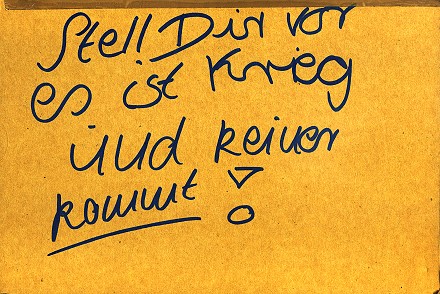 Stell Dir vor
es ist Krieg
und keiner
kommt!